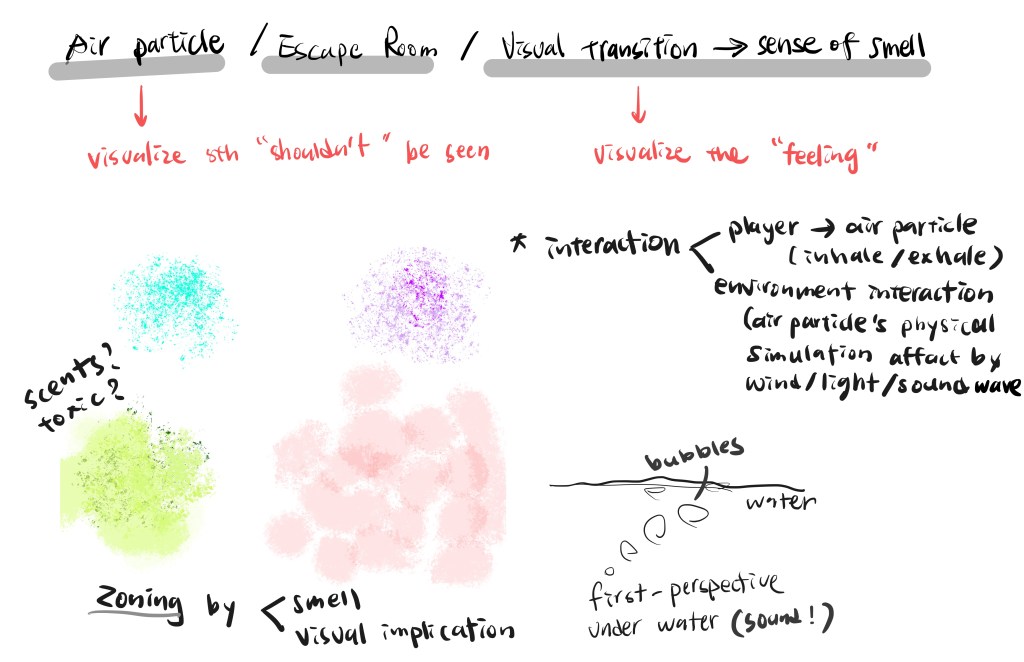 Air particle / Escape Room / Visual transition → sense of smell
visualize sth "shouldn't" be seen
visualize the "feeling"
* interaction < player → air particle
(inhale/exhale)
environment interaction
(air particle's physical
simulation affact by
wind/light/soundwave
scents?
toxic?
bubbles
water
first-perspective
under water (sound!)
Zoning by < smell
visual implication